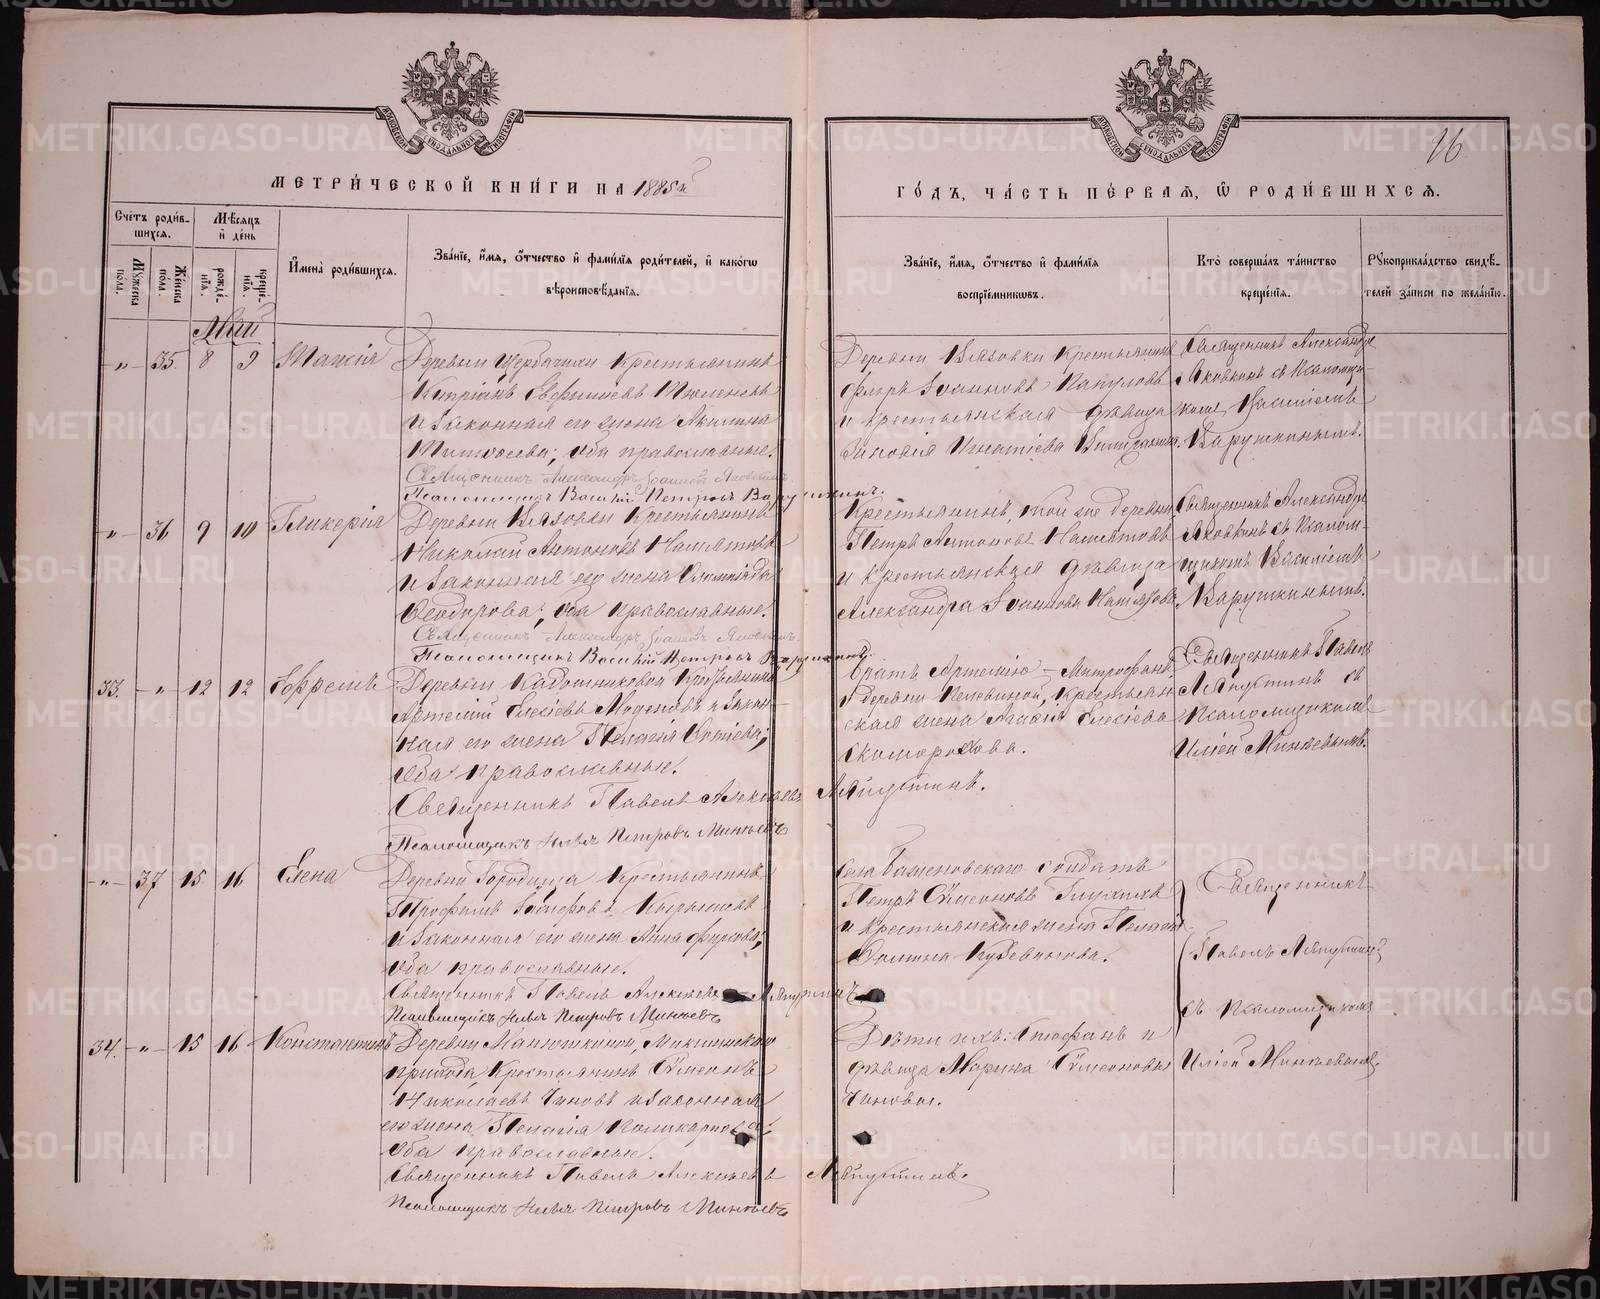 МЕТРИ́ЧЕСКОЙ КНИ́ГИ НА 1885й
ГО́ДЪ, ЧА́СТЬ ПЕ́РВАЯ, Ѡ РОДИ́ВШИХСЯ.
16
Сче́тъ роди́вшихся.
Му́жеска по́ла.
Же́нска по́ла.
Мѣ́сяцъ и де́нь
рожде́нія.
креще́нія.
И́мена роди́вшихся.
Зва́ніе, и́мя, о́тчество и фами́лія роди́телей, и како́гѡ
вѣроисповѣ́данія.
Зва́ніе, и́мя, о́тчество и фами́лія
воспріе́мникѡвъ.
Кто́ соверша́лъ та́инство
креще́нія.
Рукоприкла́дство свидѣ́-
телей за́писи по жела́нію.
Май
" 35. 8 9 Таисія
Деревни Щербачихи Крестьянинъ
Кипріанъ Евфиміевъ
и законная его жена Акилина
оба православные.
Священникъ Александръ Іоанновъ Яковкинъ
Псаломщикъ Василій Петровъ Варушкинъ.
Деревни Вязовки Крестьянинъ
Фирсъ Іоанновъ
и крестьянская дѣвица
Зиновія Игнатіева
Священникъ Александръ
Яковкинъ съ Псаломщи-
комъ Василіемъ
Варушкинымъ.
" 36 9 10 Гликерія
Деревни Вязовки Крестьянинъ
Николай Антоновъ
и законная его жена Олимпіада
Ѳеодорова; оба православные.
Священникъ Александръ Іоанновъ Яковкинъ.
Псаломщикъ Василій Петровъ Варушкинъ.
Крестьянинъ, той же деревни
Петръ Антоновъ
и крестьянская дѣвица
Александра Іоаннова
Священникъ Александръ
Яковкинъ съ Псалом-
щикомъ Василіемъ
Варушкинымъ.
33. " 12 12 Ефремъ
Деревни Кадочниковой Крестьянинъ
Артемій Елесіевъ и закон-
ная его жена Пелагія
Оба православные.
Священникъ Павелъ Алексѣевъ Ляпустинъ.
Псаломщикъ Илья Петровъ Минѣевъ
Братъ Артемію Митрофанъ
и деревни Пелевиной, Крестьян-
ская жена Агафія Елесіева
Скоморохова.
Священникъ Павелъ
Ляпустинъ съ
Псаломщикомъ
Иліей Минѣевымъ.
" 37 15 16 Елена
Деревни Городища Крестьянинъ
Трофимъ
и законная его жена Анна Фирсова;
Оба православные.
Священникъ Павелъ Алексѣевъ Ляпустинъ
Псаломщикъ Илья Петровъ Минѣевъ
Села Баженовскаго солдатъ
Петръ Сѷмеоновъ
и крестьянская жена Пелагія
Священникъ
Павелъ Ляпустинъ
съ Псаломщикомъ
Иліей Минѣевымъ.
34. " 15 16 Константинъ
Деревни
прихода, Крестьянинъ Сѷмеонъ
Николаевъ Чиновъ и законная
его жена Пелагія Поликарпова;
Оба православные.
Священникъ Павелъ Алексѣевъ Ляпустинъ.
Псаломщикъ Илья Петровъ Минѣевъ
Дѣти ихъ: Стефанъ и
дѣвица Марина Сѷмеоновы
Чиновы.